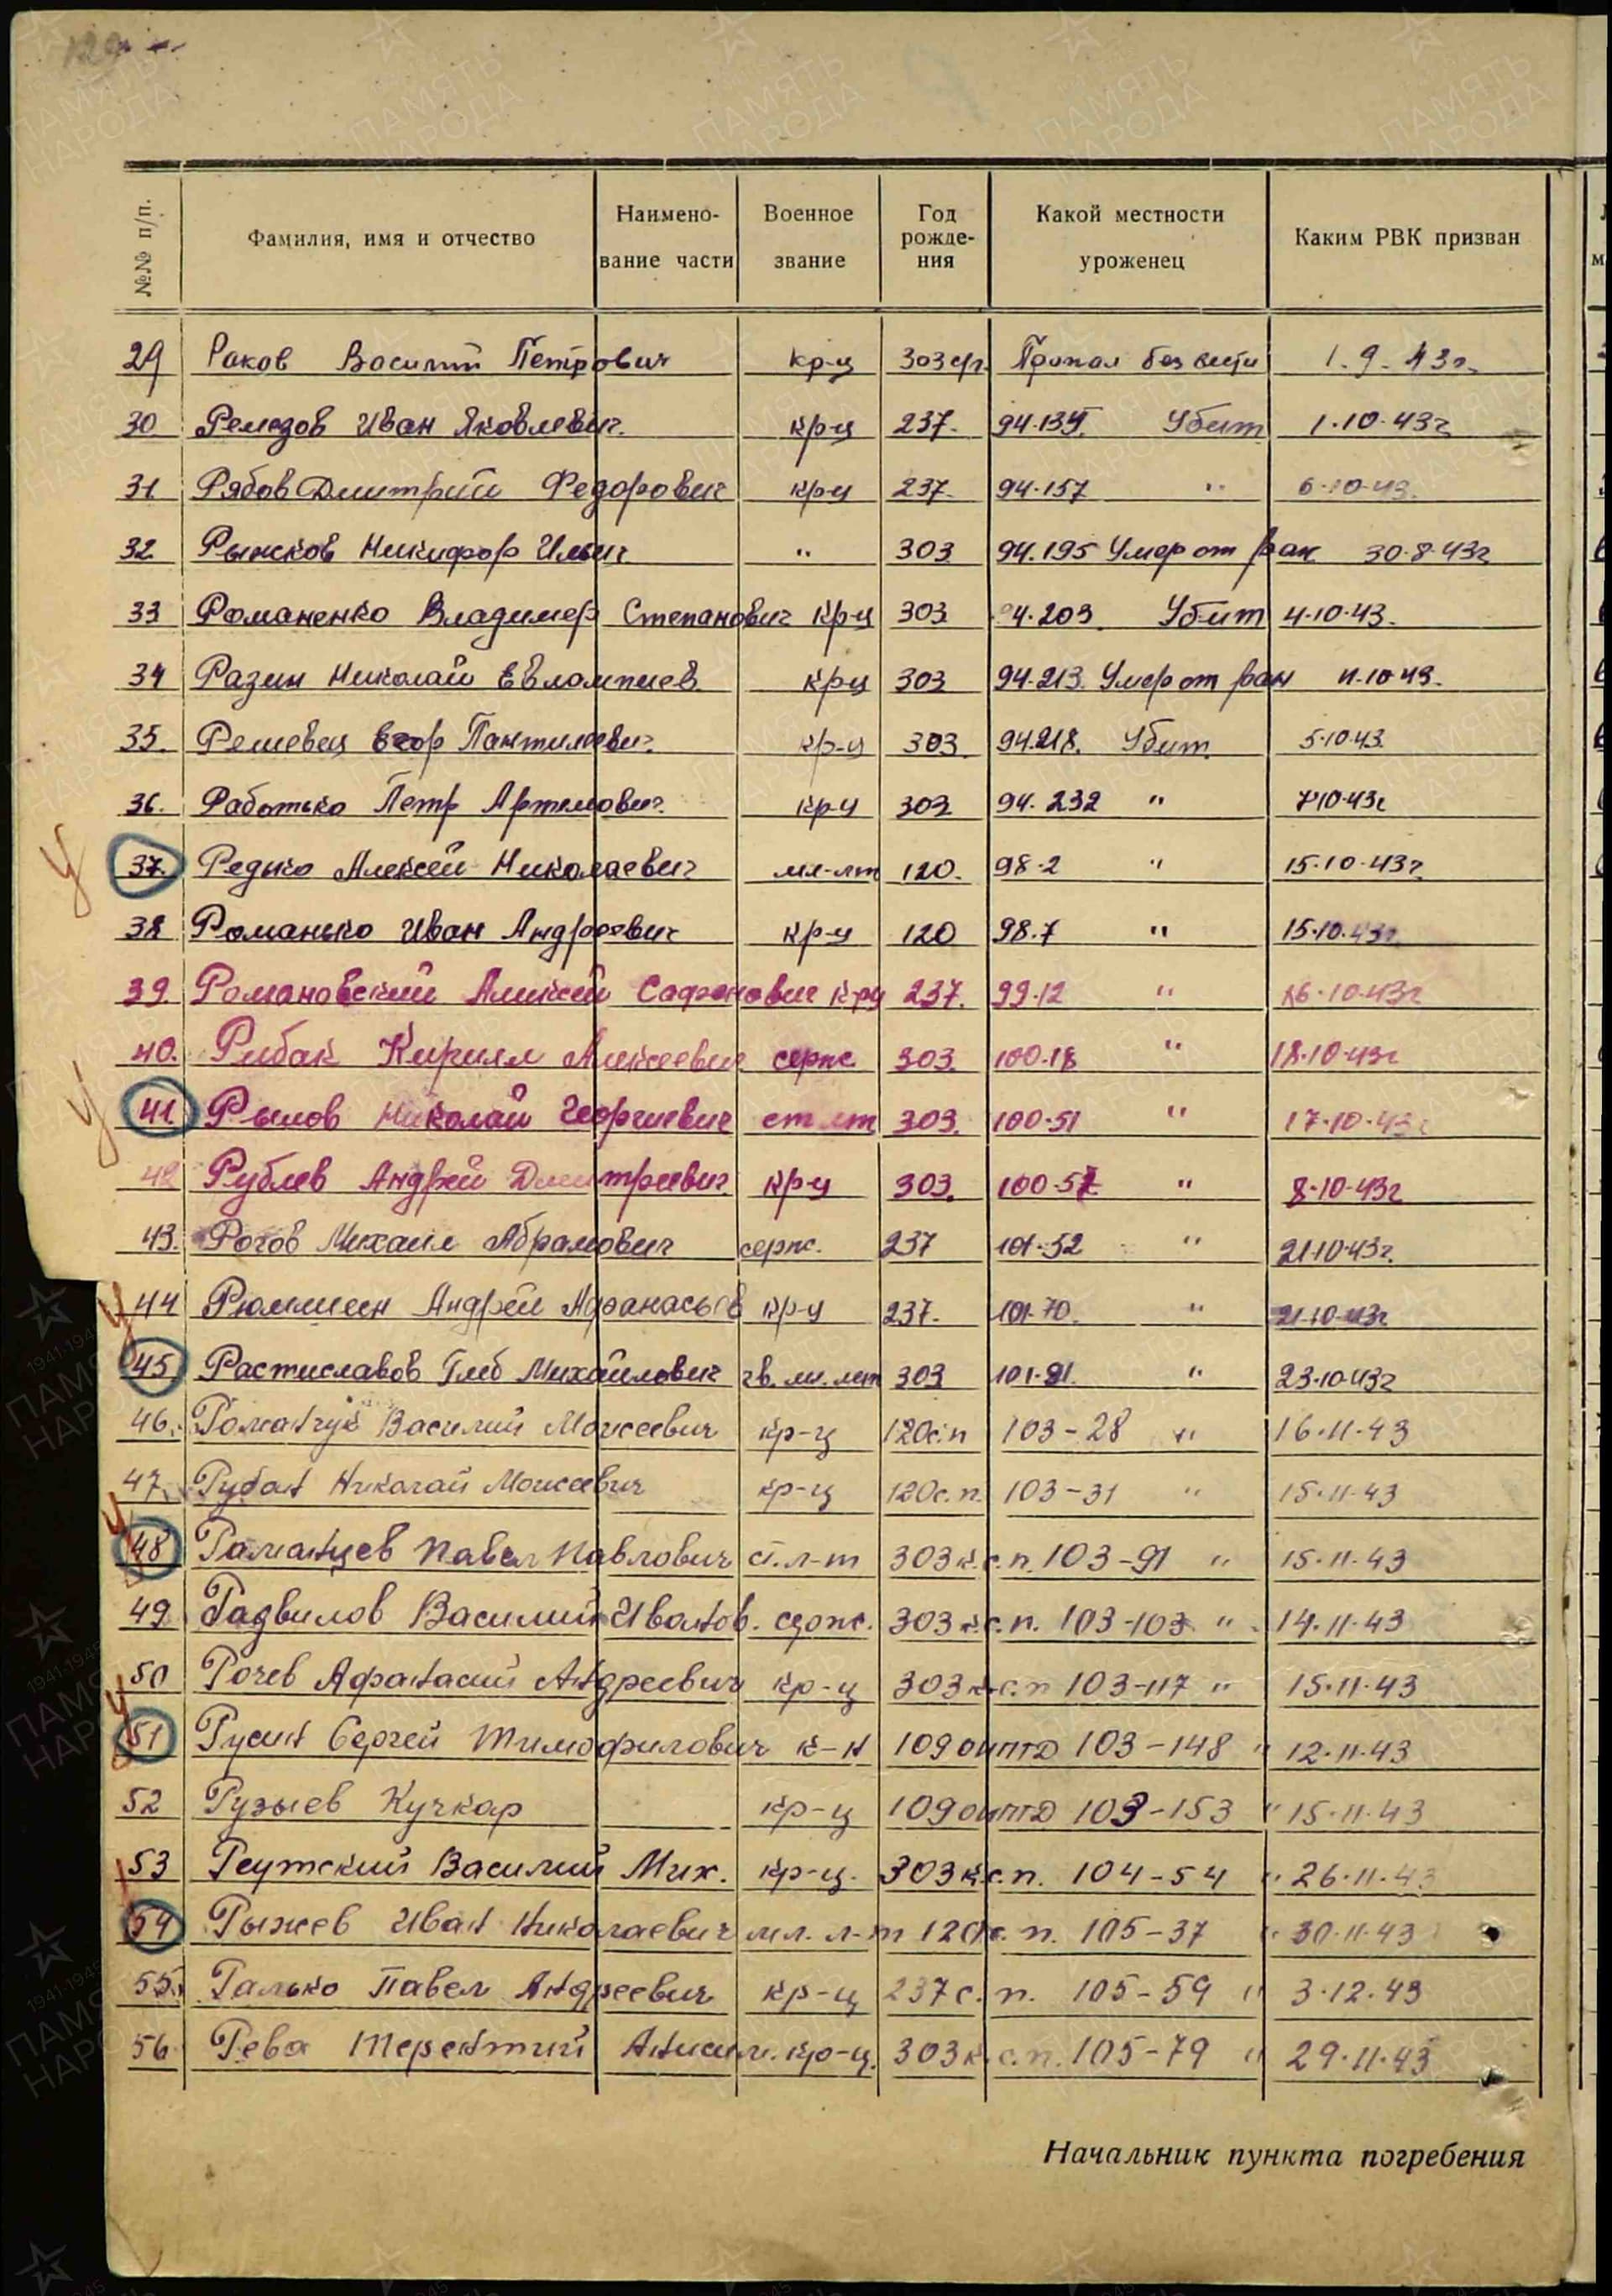 №№ п/п.
Фамилия, имя и отчество
Наимено-
вание части
Военное
звание
Год
рожде-
ния
Какой местности
уроженец
Каким РВК призван
29 Раков Василий Петрович кр-ц 303 сп. Пропал без вести 1.9.43г.
30 Ремезов Иван Яковлевич. кр-ц 237. 94.139. Убит 1.10.43г
31 Рябов Дмитрий Федорович кр-ц 237. 94.157 " 6.10.43.
32 Рыжков Никифор Ильич " 303 94.195 Умер от ран 30.8.43г
33 Романенко Владимер Степанович кр-ц 303 94.203 Убит 4.10.43.
34 Разин Николай Евлампиев кр-ц 303 94.213. Умер от ран 11.10.43.
35. Решевец Егор Пантилеевич. кр-ц 303. 94.218. Убит. 5.10.43.
36. Работько Петр Артемович. кр-ц 303 94.232 " 7.10.43г
37. Редько Алексей Николаевич мл-лт 120. 98.2 " 15.10.43г.
38 Романько Иван Андреевич кр-ц 120 98.7 " 15.10.43г.
39 Романовский Алексей Софронович кр-ц 237. 99.12 " 16.10.43г
40. Рибак Кирилл Алексеевич серж. 303. 100.18 " 18.10.43г
41. Рылов Николай Георгиевич ст лт 303. 100.51 " 17.10.43г
42 Рублев Андрей Дмитреевич. кр-ц 303. 100.57 " 8.10.43г
43. Рогов Михаил Абрамович серж. 237 101.52 " 21.10.43г.
44 Рюмшин Андрей Афанасьев кр-ц 237. 101.70. " 21.10.43г
45 Растиславов Глеб Михайлович гв. мл. лт 303 101.91. " 23.10.43г
46. Романчук Василий Моисеевич кр-ц 120с.п 103-28 " 16.11.43
47. Рубан Николай Моисеевич кр-ц 120с.п. 103-31 " 15.11.43
48 Романцев Павел Павлович ст.л-т 303 к.с.п. 103-91 " 15.11.43
49. Радвилов Василий Иванов. серж. 303 к.с.п. 103-103 " 14.11.43
50 Рочев Афанасий Андреевич кр-ц 303 к.с.п 103-117 " 15.11.43
51 Русин Сергей Тимофилович к-н 109 оиптд 103-148 " 12.11.43
52 Рузыев Кучкар кр-ц 109 оиптд 103-153 " 15.11.43
53 Реутский Василий Мих. кр-ц. 303 к.с.п. 104-54 " 26.11.43
54 Рыжев Иван Николаевич мл. л-т 120с.п. 105-37 " 30.11.43
55. Ралько Павел Андреевич кр-ц 237 с.п. 105-59 " 3.12.43
56. Рева Терентий Анисим. кр-ц. 303 к.с.п. 105-79 " 29.11.43
Начальник пункта погребения
ПАМЯТЬ НАРОДА
1941-1945